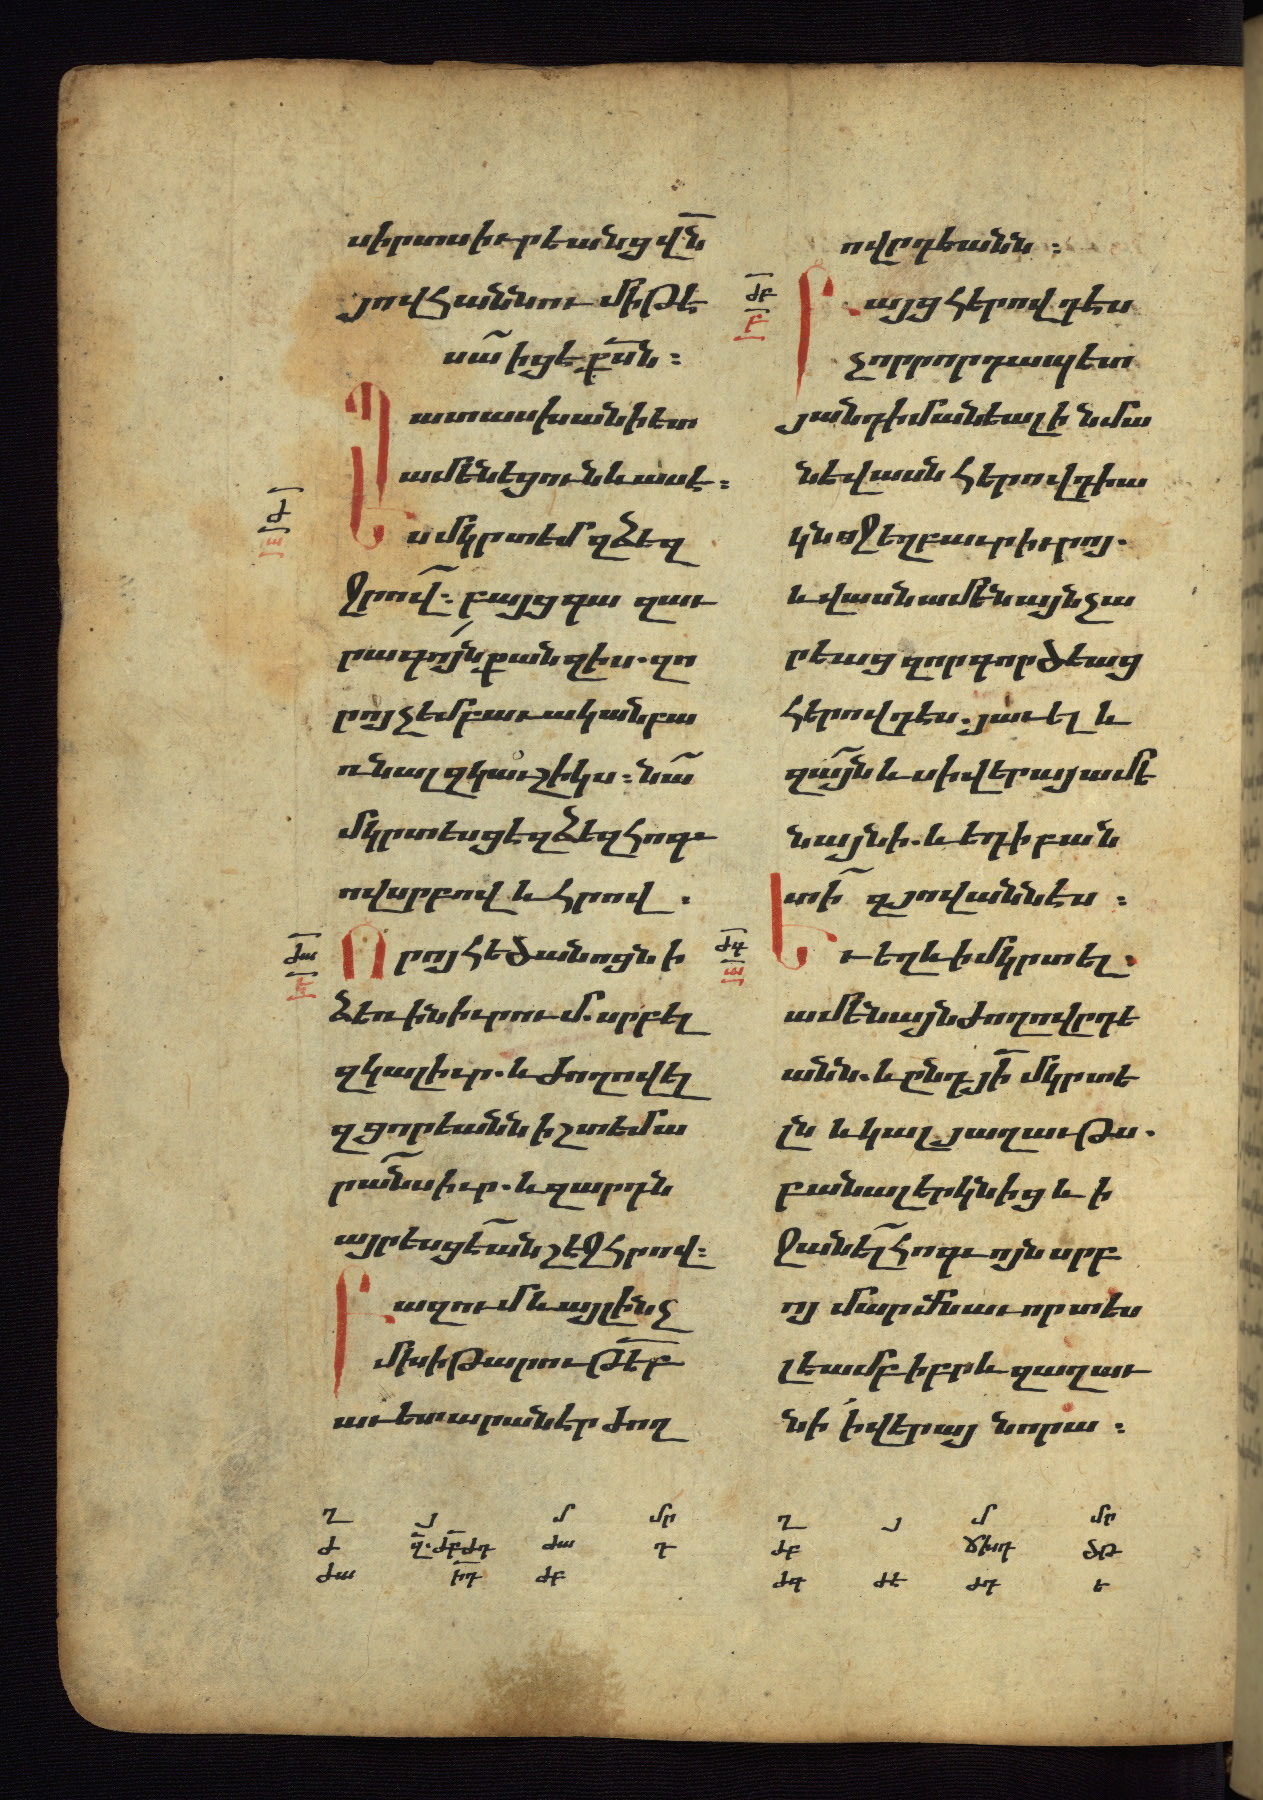 սիրտս իւրեանց վն̄
յովհաննու մի թէ
սա̄ իցէ քս̄ն ։
Պատասխանի ետ
ամենեցուն և ասէ ։
Ես մկրտեմ զձեզ
ջրով̄ ։ բայց գա զաւ
րագոյն քան զիս . զո
րոյ չեմ բաւական բա
ունալ զկաւշիկս ։ նա̄
մկրտեսցէ զձեզ հոգ
ովսրբով և հրով .
Որոյ հեծանոցն ի
ձեռին իւրում . սրբել
զկալ իւր . և ժողովել
զցորեանն ի շտեմա
րա̄նս իւր . և զյարդն
այրեսցէ անշէջ հրով ։
Բազում և այլ ինչ
մխիթարութե̄բ
աւետարանէր ժող
ովըրդեանն ։
Բայց հերովդէս
չորրորդապետ
յանդիմանեալ ի նմա
նէ վասն հերովդիա
կնոջ եղբաւր իւրոյ .
և վասն ամենայն չա
րեաց զոր գործեաց
հերովդէս . յաւել և
զա̄յն ևս ի վերայ ամե
նայնի . և եդ ի բան
տի̄ զյովաննէս ։
Եւ եղև ի մկրտել .
ամենայն ժողովըրդե
անն . և ընդ յի̄ մկրտե
լն և կալ յաղաւթս .
բանալ երկնից և ի
ջանել̄ հոգւոյն սրբ
ոյ մարմնաւոր տես
լեամբ իբրև զաղաւ
նի ի վերայ նորա ։
ժ
ե
ժա
ե
ժբ
բ
ժգ
ա
Ղ Յ Մ Մր
ժ զ . ժբ ժդ ժա դ
ժա իդ ժբ
Ղ Յ Մ Մր
ժբ ճխդ ծթ
ժգ ժե ժդ ե